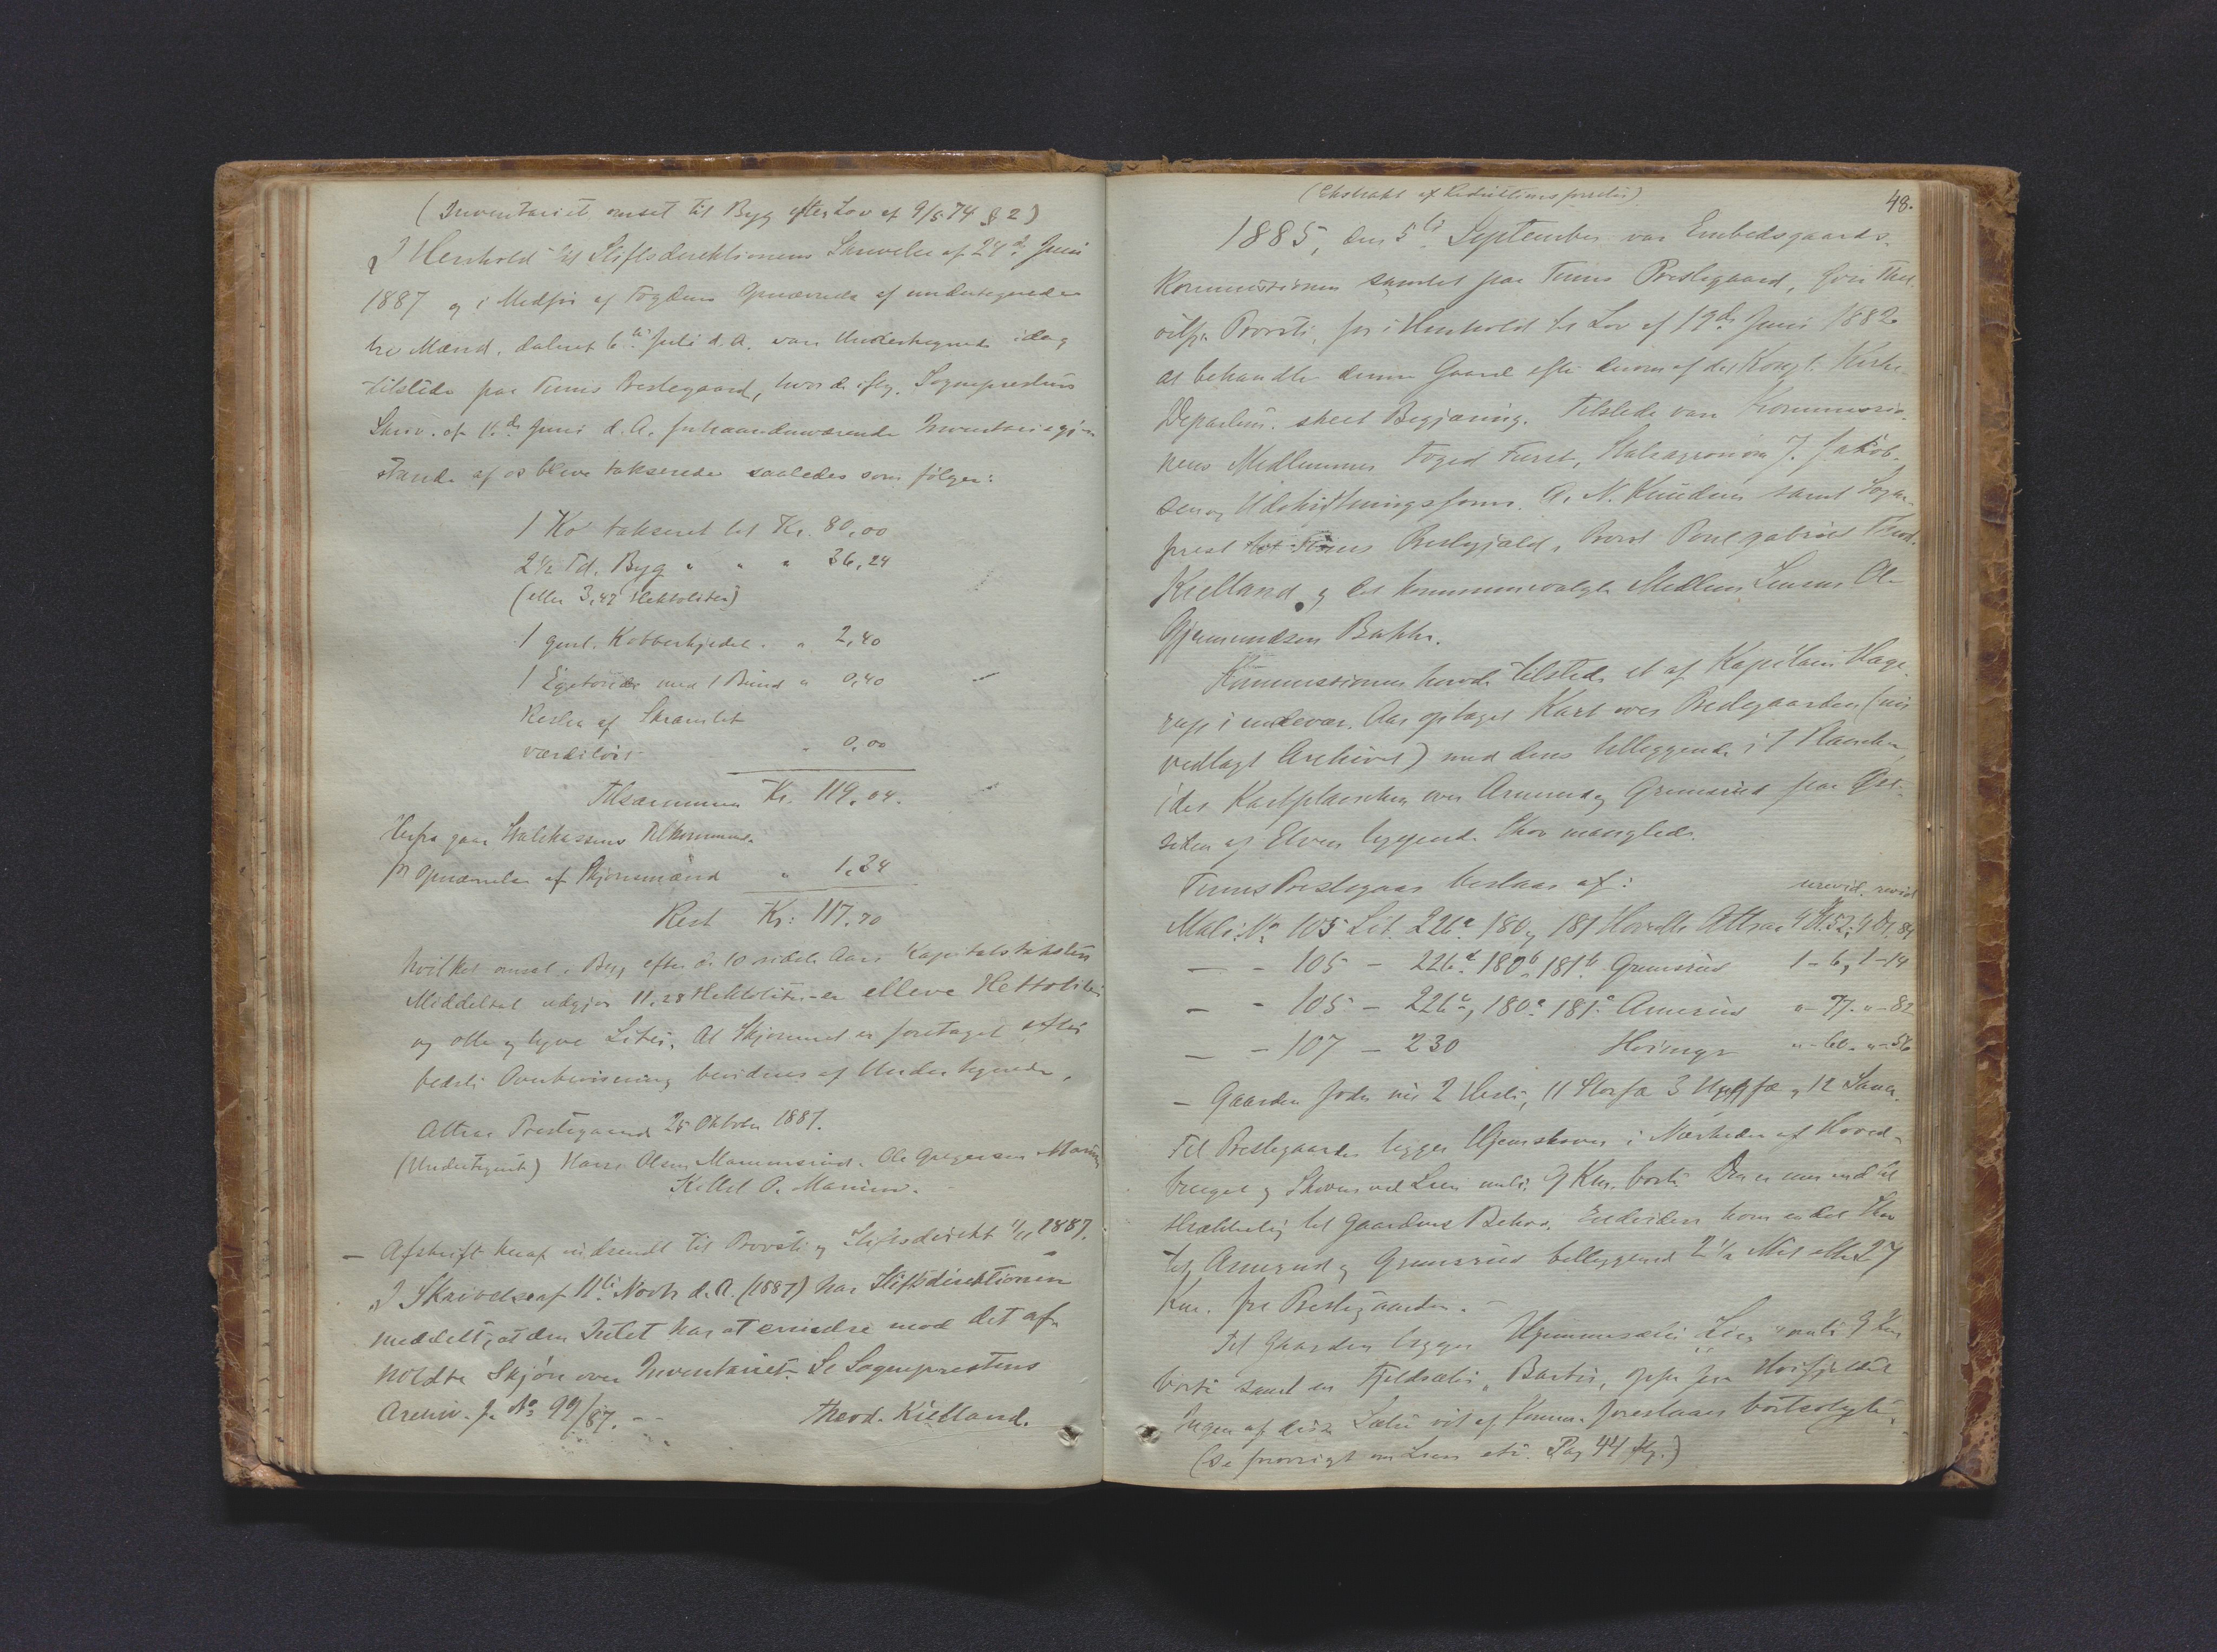 (Inventariet omsat til Byg efter Lov af 9/5 74 § 2)
I Henhold til Stiftsdirektionens Skrivelse af 24de Juni
1887 og i Medfør af Fogdens Opnævnelse af undertegnede
tre Mænd, dateret 6te Juli d. A. vare Undertegnede idag
tilstede paa Tinns Prestegaard, hvor de iflg. Sogneprestens
Skriv. af Juni d. A. forhaandenværende Inventariegjen-
stande af os bleve takserede saaledes som følger:
1 Ko takseret til Kr. 80,00
2½ Td. Byg " " " 36,24
(eller 3,47 Hektoliter)
1 gml. Kobberkjedel " " 2,40
1 Egetønde med 1 Bund " 0,40
Rester af Skramlet
værdiløst " 0,00
Tilsammen Kr. 119,04.
Herfra gaar Statskassens Tilkommende
for Opnævnelse af Skjønsmænd " 1,34
Rest Kr: 117.70
hvilket omsat i Byg efter de 10 sidste Aars Kapitelstakster
Middeltal udgjør 11,28 Hektoliter - er elleve Hektoliter
og otte og tyve Liter. At Skjønnet er foretaget efter
bedste Overbevisning bevidnes af Undertegnede.
Attraa Prestegaard 25 Oktober 1887.
(Undertegnet) Hans Olsen Ole Gregersen
Kittel O.
— Afskrift heraf indsendt til Provsti og Stiftsdirekt 1/11 1887.
"I Skrivelse af 11te Novbr d. A. (1887) har Stiftsdirektionen
meddelt, at den Intet har at erindre mod det af-
holdte Skjøn over Inventariet. Se Sogneprestens
Archiv. J. No 99/87. — Theod. Kielland.
(Ekstrakt af )
48.
1885, den 5te September var Embedsgaards-
kommissionen samlet paa Tinns Prestegaard, Øvre Thel.
Provsti, for i Henhold til Lov af 19de Juni 1882
at behandle denne Gaard efter derom af det Kongl. Kirke-
Departem. skeet Begjæring. Tilstede vare Kommissio-
nens Medlemmer Foged Furst, Statsagronom J. Jakob-
sen og Udskiftningsform. A. N. Knudsen samt Sogne-
prest til Tinns Prestegjæld, Provst Poul Gabriel Theod.
Kielland og det kommunevalgte Medlem Ole
Gjermundsen Bakke.
Kommissionen havde tilstede et af Kapitain
i indevær. Aar optaget Kart over Prestegaarden (nu
vedlagt Archivet) med dens tilliggende i 7 Plancher,
ider Kartplanchen over Amerud og Grimsrud paa Øst-
siden af Elven liggende Skov manglede.
Tinns Prestegaard bestaar af: urevid. revid
Matr. No 105 Lit. 226a 180 og 181 Hovedb. Attraa 4 52, 4 84
— - 105 - 226 180b 181b Grimsrud 1 - 6, 1 - 14
— - 105 - 226, 180 181 Amerud " - 77. " - 82
— - 107 - 230 " - 60. " - 56
— Gaarden føder nu 2 Heste, 11 Storfæ 3 Ungfæ og 12 Sauer.
Til Prestegaarden ligger Hjemskoven i Nærheden af Hoved-
bruget og Skoven ved Lien omtr. 9 Klm. borte. Den er mer end til-
strækkelig til Gaardens Behov. Endvidere hører en Del Skov
til Amerud og Grimsrud beliggende 2½ Mil eller 27
Km. fra Prestegaarden. —
Til Gaarden ligger Hjemmesæter Lien omtr. 9 Km
borte samt en Fjeldsæter, oppe paa
Ingen af disse Sætre vil af Komm. foreslaaes bortsolgte.
(Se forøvrigt om Lien etc. Pag 44 flg.)